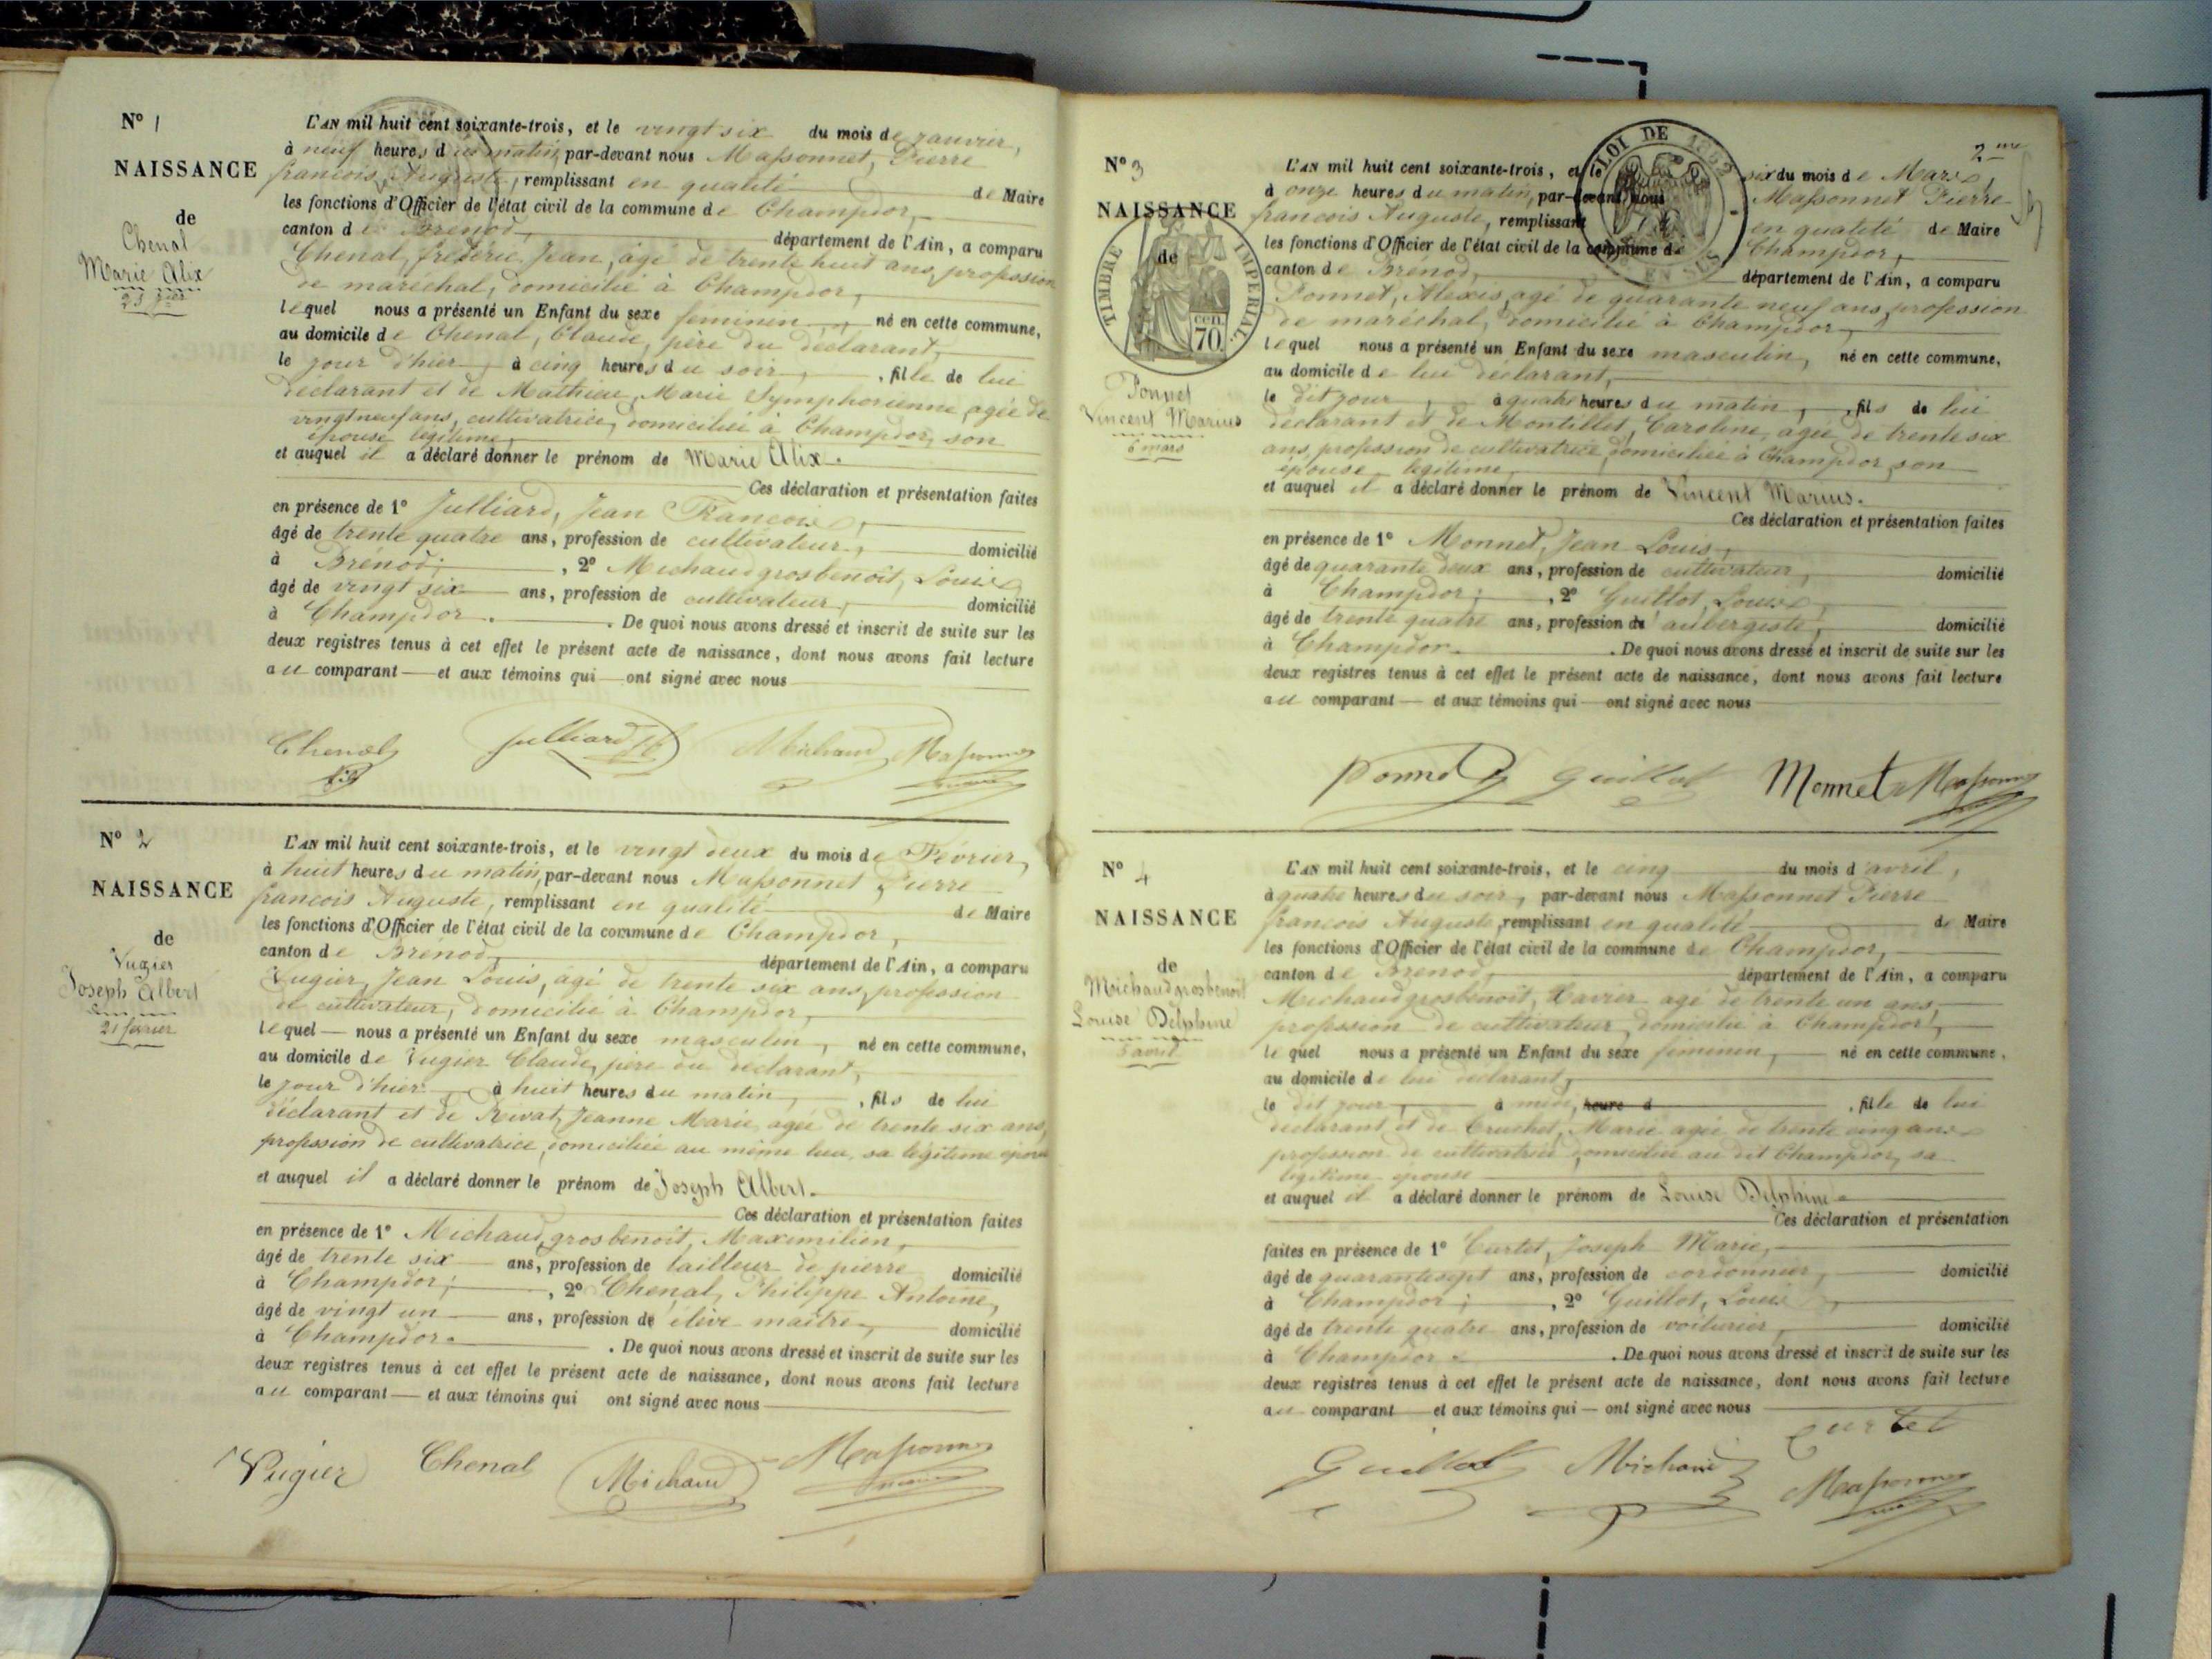 N° 1
NAISSANCE
de
Chenal
Marie Alix
L'AN mil huit cent soixante-trois, et le vingt six du mois de janvier,
à neuf heures du matin, par-devant nous Massonnet, Pierre
françois Auguste, remplissant en qualité de Maire
les fonctions d'Officier de l'état civil de la commune de Champdor,
canton de Brénod, département de l'Ain, a comparu
Chenal, fréderic Jean, agé de trente huit ans, profession
de maréchal, domicilié à Champdor,
lequel nous a présenté un Enfant du sexe féminin, né en cette commune,
au domicile de Chenal, Claude, père du déclarant,
le jour d'hier, à cinq heures du soir, , fille de lui
déclarant et de Mathieu, Marie Symphorienne, agée de
vingt neuf ans, cultivatrice, domiciliée à Champdor, son
épouse légitime,
et auquel il a déclaré donner le prénom de Marie Alix.
Ces déclaration et présentation faites
en présence de 1° Julliard, Jean François,
âgé de trente quatre ans, profession de cultivateur, domicilié
à Brénod; , 2° Michaud grosbenoit, Louis,
âgé de vingt six ans, profession de cultivateur, domicilié
à Champdor. . De quoi nous avons dressé et inscrit de suite sur les
deux registres tenus à cet effet le présent acte de naissance, dont nous avons fait lecture
au comparant — et aux témoins qui — ont signé avec nous
Chenal Julliard Michaud Massonnet
N° 2
NAISSANCE
de
Vugier
Joseph Albert
21 février
L'AN mil huit cent soixante-trois, et le vingt deux du mois de Février,
à huit heures du matin, par-devant nous Massonnet Pierre
françois Auguste, remplissant en qualité de Maire
les fonctions d'Officier de l'état civil de la commune de Champdor,
canton de Brénod, département de l'Ain, a comparu
Vugier, Jean Louis, agé de trente six ans, profession
de cultivateur, domicilié à Champdor,
lequel — nous a présenté un Enfant du sexe masculin, né en cette commune,
au domicile de Vugier Claude, père du déclarant,
le jour d'hier à huit heures du matin, , fils de lui
déclarant et de Rivat, Jeanne Marie, agée de trente six ans,
profession de cultivatrice, domiciliée au même lieu, sa légitime épouse
et auquel il a déclaré donner le prénom de Joseph Albert.
Ces déclaration et présentation faites
en présence de 1° Michaud grosbenoit, Maximilien,
âgé de trente six ans, profession de tailleur de pierre domicilié
à Champdor; , 2° Chenal, Philippe Antoine,
âgé de vingt un ans, profession de élève maitre, domicilié
à Champdor. . De quoi nous avons dressé et inscrit de suite sur les
deux registres tenus à cet effet le présent acte de naissance, dont nous avons fait lecture
au comparant — et aux témoins qui ont signé avec nous
Vugier Chenal Michaud Massonnet
2me
N° 3
NAISSANCE
de
TIMBRE IMPERIAL
cen.
70.
Ponnet
Vincent Marius
6 mars
LOI DE 1862
EN SUS
L'AN mil huit cent soixante-trois, et le six du mois de Mars,
à onze heures du matin, par-devant nous Massonnet Pierre
françois Auguste, remplissant en qualité de Maire
les fonctions d'Officier de l'état civil de la commune de Champdor,
canton de Brénod, département de l'Ain, a comparu
Ponnet, Alexis, agé de quarante neuf ans, profession
de maréchal, domicilié à Champdor,
lequel nous a présenté un Enfant du sexe masculin, né en cette commune,
au domicile de lui déclarant,
le dit jour, à quatre heures du matin, , fils de lui
déclarant et de Montillet, Caroline, agée de trente six
ans, profession de cultivatrice, domiciliée à Champdor, son
épouse légitime,
et auquel il a déclaré donner le prénom de Vincent Marius.
Ces déclaration et présentation faites
en présence de 1° Monnet, Jean Louis,
âgé de quarante deux ans, profession de cultivateur, domicilié
à Champdor; , 2° Guillot, Louis,
âgé de trente quatre ans, profession de aubergiste, domicilié
à Champdor. . De quoi nous avons dressé et inscrit de suite sur les
deux registres tenus à cet effet le présent acte de naissance, dont nous avons fait lecture
au comparant — et aux témoins qui — ont signé avec nous
Ponnet Guillot Monnet Massonnet
N° 4
NAISSANCE
de
Michaudgrosbenoit
Louise Delphine
5 avril
L'AN mil huit cent soixante-trois, et le cinq du mois d'avril,
à quatre heures du soir, par-devant nous Massonnet Pierre
françois Auguste, remplissant en qualité de Maire
les fonctions d'Officier de l'état civil de la commune de Champdor,
canton de Brénod, département de l'Ain, a comparu
Michaudgrosbenoit, Xavier agé de trente un ans,
profession de cultivateur, domicilié à Champdor,
lequel nous a présenté un Enfant du sexe féminin, né en cette commune,
au domicile de lui déclarant,
le dit jour, à midi, heure d , fille de lui
déclarant et de Cruchet, Marie agée de trente cinq ans
profession de cultivatrice, domiciliée au dit Champdor, sa
légitime épouse
et auquel il a déclaré donner le prénom de Louise Delphine.
Ces déclaration et présentation
faites en présence de 1° Curtet, Joseph Marie,
âgé de quarante sept ans, profession de cordonnier, domicilié
à Champdor; , 2° Guillot, Louis,
âgé de trente quatre ans, profession de voiturier, domicilié
à Champdor. . De quoi nous avons dressé et inscrit de suite sur les
deux registres tenus à cet effet le présent acte de naissance, dont nous avons fait lecture
au comparant — et aux témoins qui — ont signé avec nous
Curtet
Guillot Michaud Massonnet